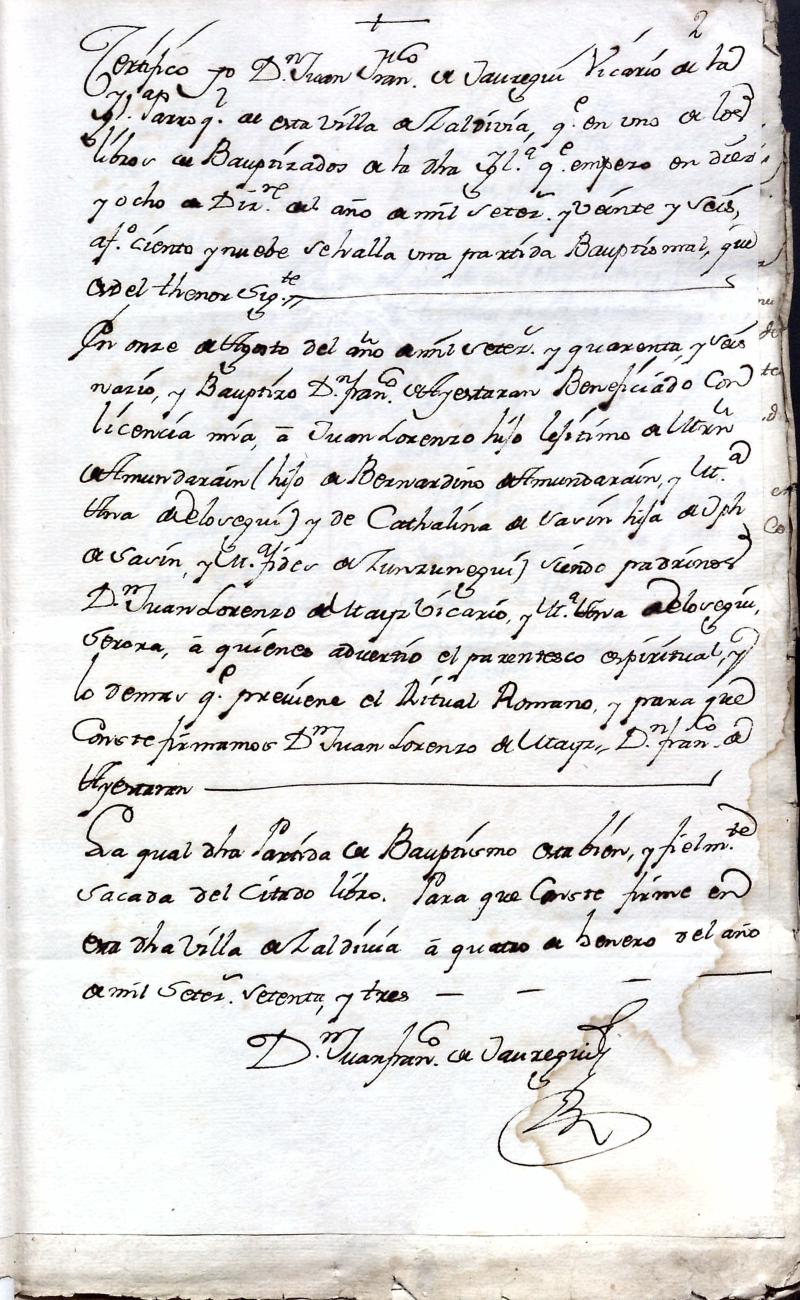 2
Certifico yo D.n Juan Fran.co de Jauregui Vicario de la
Ygl.a Parroq.l de esta Villa de Zaldivia, q.e en uno de los
libros de Bauptizados de la dha Ygl.a q.e empezo en diez
y ocho de Diz.re del año de mil Setez.s y veinte y seis,
a f.o ciento y nuebe se halla una partida Bauptismal, que
es del thenor Sig.te
En onze de Agosto del año de mil setez.s y quarenta, y seis
nazio, y Bauptizo D.n fran.co de Ayestaran Beneficiado con
licencia mia, â Juan Lorenzo hijo lejitimo de Mrn
de Amundarain (hijo de Bernardino de Amundarain, y M.a
Ana de Elosegui) y de Cathalina de Sasin hija de Jph
de Sasin, y M.a fides de Zunzunegui) siendo padrinos
D.n Juan Lorenzo de Mayz Vicario, y M.a Ana de Elosegui,
Serora, â quienes advertio el parentesco espiritual, y
lo demas q.e previene el Ritual Romano, y para que
Conste firmamos D.n Juan Lorenzo de Mayz, D.n fran.co de
Ayestaran
La qual dha Partida de Bauptismo esta bien, y fielm.te
sacada del Citado libro. Para que Conste firme en
esta dha Villa de Zaldivia â quatro de henero del año
de mil Setez.s setenta, y tres
D.n Juan fran.co de Jauregui